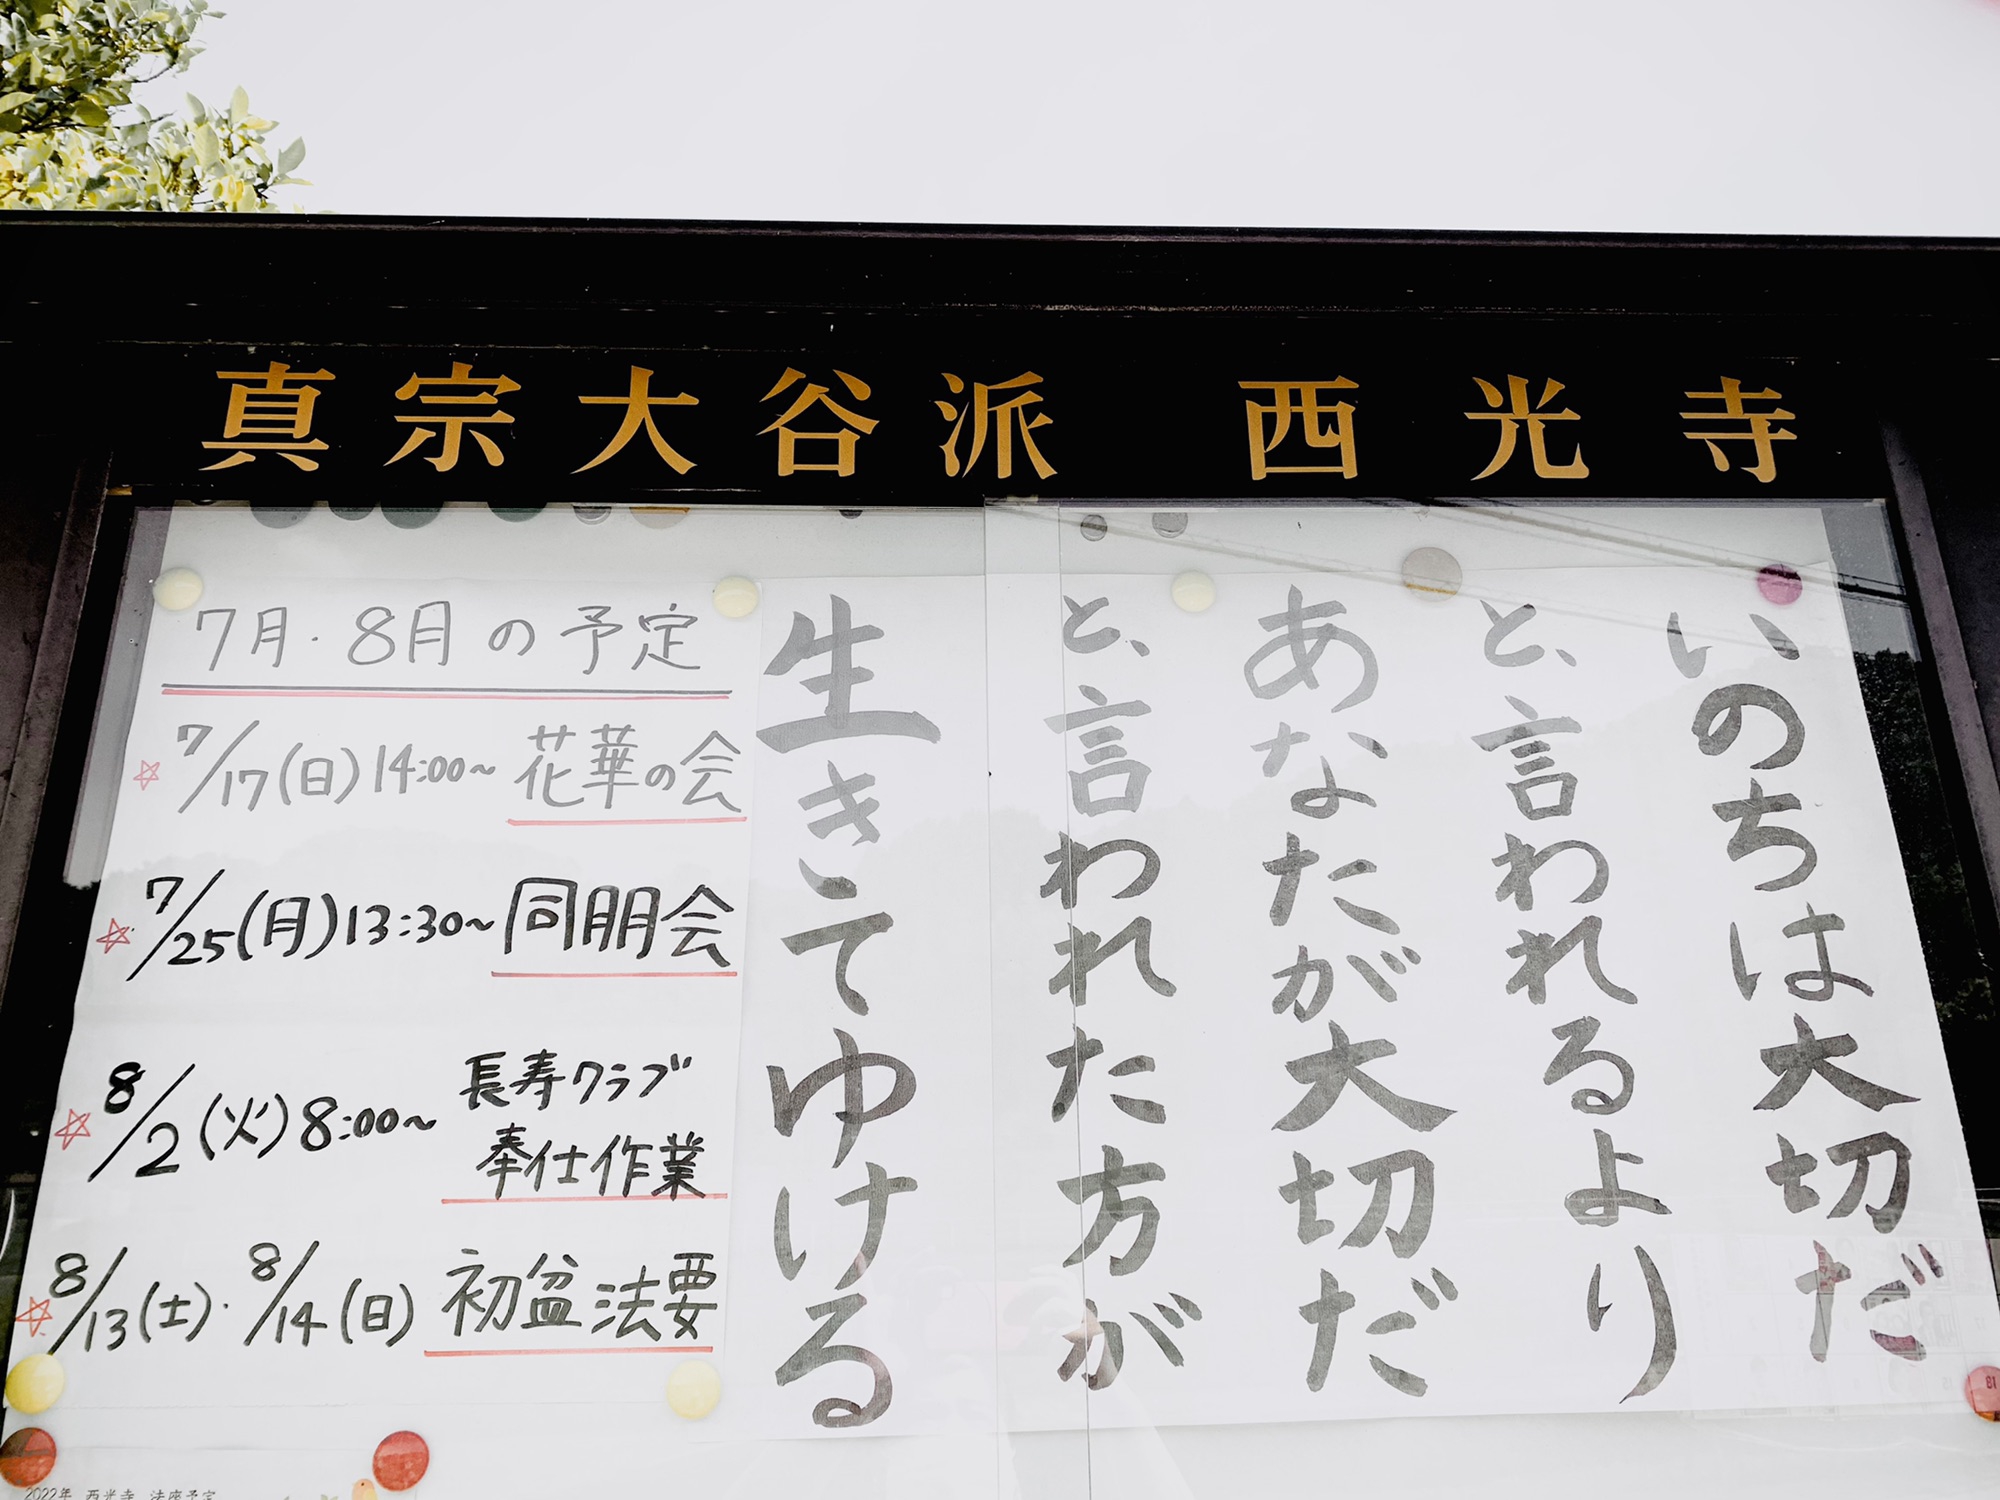 真宗大谷派 西光寺
いのちは大切だ
と、言われるより
あなたが大切だ
と、言われた方が
生きてゆける
7月・8月の予定
☆ 7/17(日)14:00~ 花華の会
☆ 7/25(月)13:30~ 同朋会
☆ 8/2(火)8:00~ 長寿クラブ
奉仕作業
☆ 8/13(土)・8/14(日) 初盆法要
2022年 西光寺 法座予定